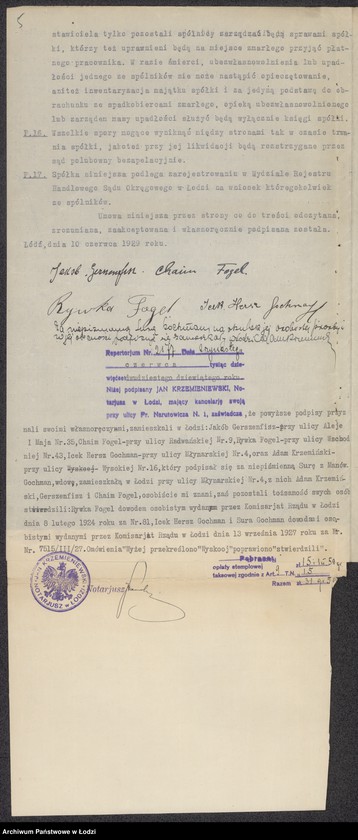 5
stawiciela tylko pozostali spólnicy zarządzać będą sprawami spół-
ki, którzy też uprawnieni będą na miejsce zmarłego przyjąć płat-
nego pracownika. W razie śmierci, ubezwłasnowolnienia lub upad-
łości jednego ze spólników nie może nastąpić opieczętowanie,
anitez inwentaryzacja majątku spółki i za jedyną podstawę do ob-
rachunku ze spadkobiercami zmarłego, opieką ubezwłasnowolnionego
lub zarządem masy upadłości służyć będą wyłącznie księgi spółki.
P.16. Wszelkie spory mogące wyniknąć między stronami tak w czasie trwa-
nia spółki, jakoteż przy jej likwidacji będą rozstrzygane przez
sąd polubowny bezapelacyjnie.
P.17. Spółka niniejsza podlega zarejestrowaniu w Wydziale Rejestru
Handlowego Sądu Okręgowego w Łodzi na wniosek któregokolwiek
ze spólników.
Umowa niniejsza przez strony co do treści odczytana,
zrozumiana, zaakceptowana i własnoręcznie podpisana została.
Łódź, dnia 10 czerwca 1929 roku.
Jakób Gerszenfisz. Chaim Fogel.
Rywka Fogel Icek-Hersz Gochman
Za niepiśmienną
Repertorium Nr. Dnia
czerwca tysiąc dzie-
więćset dwudziestego dziewiątego roku
Niżej podpisany JAN KRZEMIENIEWSKI, No-
tarjusz w Łodzi, mający kancelarję swoją
przy ulicy Pr. Narutowicza N. 1, zaświadcza, że powyższe podpisy przyz
nali swoimi własnoręcznymi, zamieszkali w Łodzi: Jakób Gerszenfisz-przy ulicy Aleje
1 Maja Nr.35, Chaim Fogel-przy ulicy Radwańskiej Nr.9, Rywka Fogel-przy ulicy Wschod
niej Nr.43, Icek Hersz Gochman-przy ulicy Młynarskiej Nr.4, oraz Adam Krzemiński-
przy ulicy Rysskoej- Wysokiej Nr.16, który podpisał się za niepiśmienną Surę z Mandw
Gochman, wdowę, zamieszkałą w Łodzi przy ulicy Młynarskiej Nr.4, z nich Adam Krzemińs-
ki, Gerszenfisz i Chaim Fogel, osobiście mi znani, zaś pozostali tożsamość swych osób
stwierdzili: Rywka Fogel dowodem osobistym wydanym przez Komisarjat Rządu w Łodzi
dnia 8 lutego 1924 roku za Nr.81, Icek Hersz Gochman i Sura Gochman dowodami oso-
bistymi wydanymi przez Komisarjat Rządu w Łodzi dnia 13 września 1927 roku za Nr.
Nr. 7515/III/27. Omówienia "Wyżej przekreślono "Rysskoej" poprawiono "stwierdzili".
Pobrano:
opłaty stemplowej
taksowej zgodnie z Art. T.N.
Razem zł
KRZEMIENIEWSKI
NOTARJUSZ w ŁODZI
Notarjusz
Archiwum Państwowe w Łodzi